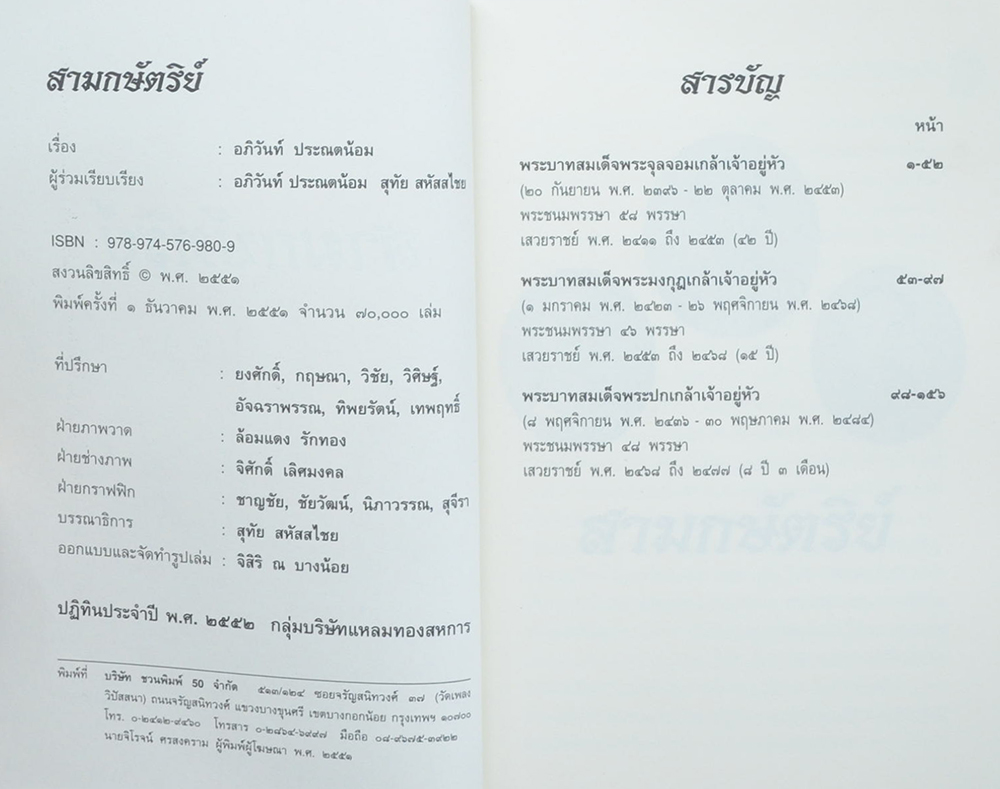 สามกษัตริย์
เรื่อง : อภิวันท์ ประณตน้อม
ผู้ร่วมเรียบเรียง : อภิวันท์ ประณตน้อม สุทัย สหัสสไชย
ISBN : 978-974-576-980-9
สงวนลิขสิทธิ์ © พ.ศ. ๒๕๕๑
พิมพ์ครั้งที่ ๑ ธันวาคม พ.ศ. ๒๕๕๑ จำนวน ๗๐,๐๐๐ เล่ม
ที่ปรึกษา : ยงศักดิ์, กฤษณา, วิชัย, วิศิษฐ์,
อัจฉราพรรณ, ทิพยรัตน์, เทพฤทธิ์
ฝ่ายภาพวาด : ล้อมแดง รักทอง
ฝ่ายช่างภาพ : จิศักดิ์ เลิศมงคล
ฝ่ายกราฟฟิก : ชาญชัย, ชัยวัฒน์, นิภาวรรณ, สุจีรา
บรรณาธิการ : สุทัย สหัสสไชย
ออกแบบและจัดทำรูปเล่ม : จิสิริ ณ บางน้อย
ปฏิทินประจำปี พ.ศ. ๒๕๕๒ กลุ่มบริษัทแหลมทองสหการ
พิมพ์ที่ บริษัท ชวนพิมพ์ 50 จำกัด ๕๑๓/๑๒๔ ซอยจรัญสนิทวงศ์ ๓๗ (วัดเพลง
วิปัสสนา) ถนนจรัญสนิทวงศ์ แขวงบางขุนศรี เขตบางกอกน้อย กรุงเทพฯ ๑๐๗๐๐
โทร. ๐-๒๔๑๒-๙๔๖๐ โทรสาร ๐-๒๘๖๔-๖๙๙๗ มือถือ ๐๘-๙๖๗๕-๓๙๒๒
นายจิโรจน์ ศรสงคราม ผู้พิมพ์ผู้โฆษณา พ.ศ. ๒๕๕๑
สารบัญ
หน้า
พระบาทสมเด็จพระจุลจอมเกล้าเจ้าอยู่หัว ๑-๕๒
(๒๐ กันยายน พ.ศ. ๒๓๙๖ - ๒๒ ตุลาคม พ.ศ. ๒๔๕๓)
พระชนมพรรษา ๕๘ พรรษา
เสวยราชย์ พ.ศ. ๒๔๑๑ ถึง ๒๔๕๓ (๔๒ ปี)
พระบาทสมเด็จพระมงกุฎเกล้าเจ้าอยู่หัว ๕๓-๙๗
(๑ มกราคม พ.ศ. ๒๔๒๓ - ๒๖ พฤศจิกายน พ.ศ. ๒๔๖๘)
พระชนมพรรษา ๔๖ พรรษา
เสวยราชย์ พ.ศ. ๒๔๕๓ ถึง ๒๔๖๘ (๑๕ ปี)
พระบาทสมเด็จพระปกเกล้าเจ้าอยู่หัว ๙๘-๑๕๖
(๘ พฤศจิกายน พ.ศ. ๒๔๓๖ - ๓๐ พฤษภาคม พ.ศ. ๒๔๘๔)
พระชนมพรรษา ๔๘ พรรษา
เสวยราชย์ พ.ศ. ๒๔๖๘ ถึง ๒๔๗๗ (๘ ปี ๓ เดือน)
สามกษัตริย์